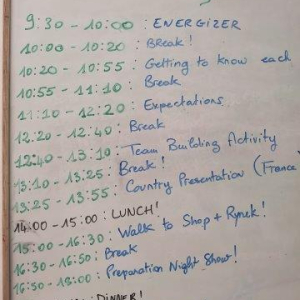 9:30 - 10:00 : ENERGIZER
10:00 - 10:20 : Break!
10:20 - 10:55 : Getting to know each
10:55 - 11:10 : Break
11:10 - 12:20 : Expectations
12:20 - 12:40 : Break
12:40 - 13:10 : Team Building Activity
13:10 - 13:25 : Break!
13:25 - 13:55 : Country Presentation (France
14:00 - 15:00 : LUNCH!
15:00 - 16:30 : Walk to Shop + Rynek!
16:30 - 16:50 : Break
16:50 - 18:00 : Preparation Night Show!
: DINNER!